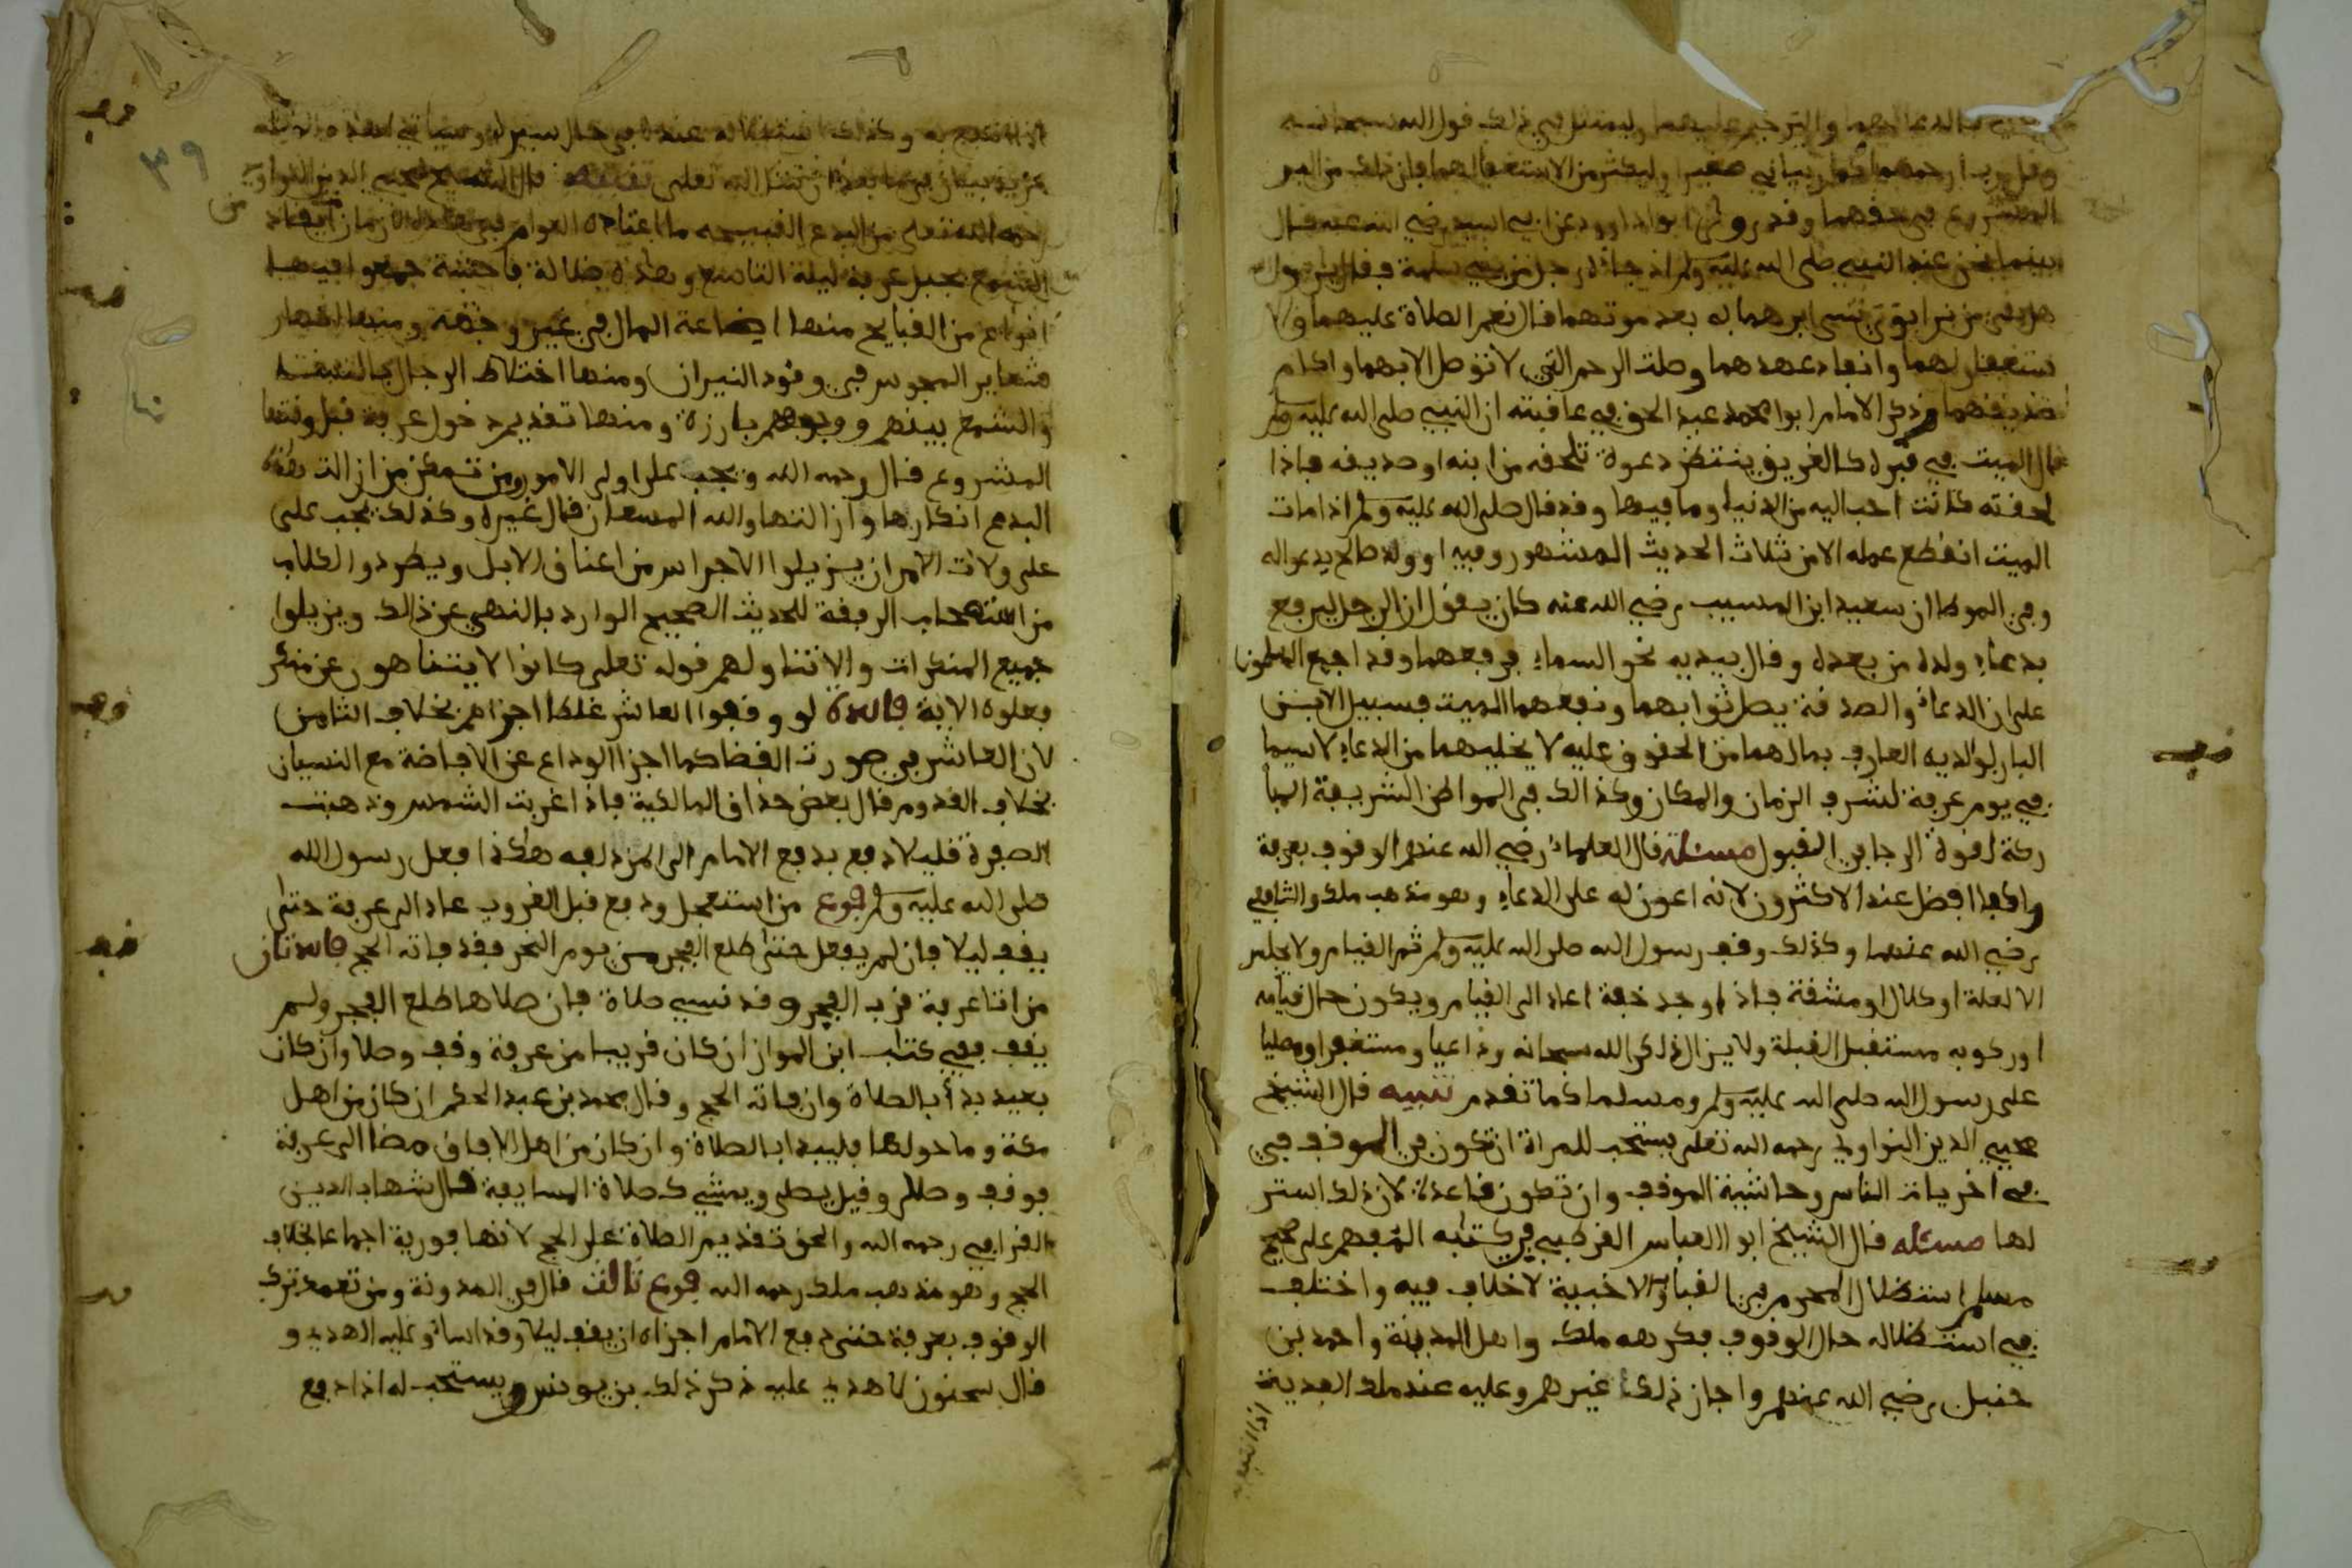 بالدعا لهما والترحيم عليهما وليمتثل في ذلك قول الله سبحانه
وقل رب ارحمهما كما ربياني صغيرا وليكثر من الاستغفار لهما فان ذلك من البر
المشروع في حقهما وقد روى ابوا داوود عن ابي اسيد رضي الله عنه قال
بينما نحن عند النبي صلى الله عليه وسلم اذ جاءه رجل من بني سلمة فقال يا رسول الله
هل بقي من بر ابوي شيء ابرهما به بعد موتهما قال نعم الصلاة عليهما والا
ستغفار لهما وانفاد عهدهما وصلت الرحم التي لا توصل الا بهما واكرام
صديقهما وذكر الامام ابوا محمد عبد الحق في عاقبته ان النبي صلى الله عليه وسلم
قال الميت في قبره كالغريق ينتظر دعوة تلحقه من ابنه او صديقه فاذا
لحقته كانت احب اليه من الدنيا وما فيها وقد قال صلى الله عليه وسلم اذا مات
الميت انقطع عمله الا من ثلاث الحديث المشهور وفيه او ولد صالح يدعوا له
وفي الموطا ان سعيد ابن المسيب رضي الله عنه كان يقول ان الرجل ليرفع
بدعاء ولده من بعده وقال بيديه نحو السماء فرفعهما وقد اجمع المسلمون
على ان الدعاء والصدقة يصل ثوابهما ونفعهما الميت فسبيل الابن
البار لوالديه العارف بمالهما من الحقوق عليه لا يخليهما من الدعاء لا سيما
في يوم عرفة لشرف الزمان والمكان وكذالك في المواطن الشريفة المبا
ركة لقوة الرجا في القبول مسئلة قال العلماء رضي الله عنهم الوقوف بعرفة
راكبا افضل عند الاكثرون لانه اعون له على الدعاء وهو مذهب ملك والشافعي
رضي الله عنهما وكذلك وقف رسول الله صلى الله عليه وسلم ثم القيام ولا يجلس
الا لعلة او كلال او مشقة فاذا وجد خفة اعاد الى القيام ويكون حال قيامه
او ركوبه مستقبل القبلة ولا يزال ذاكر الله سبحانه وداعيا ومستغفرا ومصليا
على رسول الله صلى الله عليه وسلم ومسلما كما تقدم تنبيه قال الشيخ
محيي الدين النواوي رحمه الله تعلى يستحب للمراة ان تكون في الموقف في
في اخريات الناس وحاشية الموقف وان تكون قاعدة لان ذلك استر
لها مسئله قال الشيخ ابوا العباس القرطبي في كتابه المفهم على صحيح
مسلم استظلال المحرم في القباب والاخبية لا خلاف فيه واختلف
في استظلاله حال الوقوف فكرهه ملك واهل المدينة واحمد بن
حنبل رضي الله عنهم واجاز ذلك غيرهم وعليه عند ملك الفدية
وكذلك استظلاله عندنا في حال سيره وسياتي لهذه
مزيد بيان فيما بعد ان شاء الله تعلى تنبيه قال الشيخ محيي الدين النواوي
رحمه الله تعلى من البدع القبيحه ما اعتاده العوام في هذه الازمان من ايقاد
الشمع بجبل عرفة ليلة التاسع وهذه ضلالة فاحشة جمعوا فيها
انواع من القبايح منها اضاعة المال في غير وجهه ومنها اظهار
شعاير المجوس في وقود النيران ومنها اختلاط الرجال بالنساء
والشمع بينهم ووجوههم بارزة ومنها تقديم دخول عرفة قبل وقتها
المشروع قال رحمه الله ويجب على اولى الامور ومن تمكن من ازالت هذه
البدع انكارها وازالتها والله المستعان قال غيره وكذلك يجب على
على ولات الامر ان يزيلوا الاجراس من اعناق الابل ويطردوا الكلاب
من استصحاب الرفقة للحديث الصحيح الوارد بالنهي عن ذالك ويزيلوا
جميع المنكرات والا تناولهم قوله تعلى كانوا لا يتناهون عن منكر
فعلوه الاية فائدة لو وقفوا العاشر غلطا اجزاهم بخلاف الثامن
لان العاشر في صورت القضا كما اجزا الوداع عن الافاضة مع النسيان
بخلاف القدوم قال بعض حذاق المالكية فاذا غربت الشمس وذهبت
الصفرة قليلا دفع بدفع الامام الى المزدلفه هكذا فعل رسول الله
صلى الله عليه وسلم فرع من استعجل ودفع قبل الغروب عاد الى عرفة حتى
يقف ليلا فان لم يفعل حتى طلع الفجر من يوم النحر فقد فاته الحج فرع ثان
من اتا عرفة قرب الفجر وقد نسي صلاة فان صلاها طلع الفجر ولم
يقف ففي كتاب ابن المواز ان كان قريبا من عرفة وقف وصلا وان كان
بعيد بدأ بالصلاة وان فاته الحج وقال محمد بن عبد الحكم ان كان من اهل
مكة وما حولها فليبدا بالصلاة وان كان من اهل الافاق مضا الى عرفة
فوقف وصلى وقيل يصلي ويمشي كصلاة المسايفة قال شهاب الدين
القرافي رحمه الله والحق تقديم الصلاة على الحج لانها فورية اجماعا بخلاف
الحج وهو مذهب ملك رحمه الله فرع ثالث قال في المدونة ومن تعمد ترك
الوقوف بعرفة حتى دفع الامام اجزاه ان يقف ليلا وقد اساء وعليه الهدي و
قال سحنون لا هدي عليه ذكر ذلك بن يونس ويستحب له اذا دفع